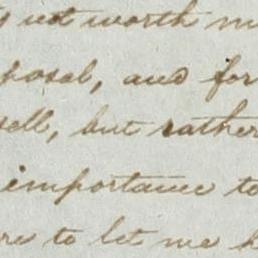 is not worth m
posal, and for
sell, but rather
importance to
re to let me h